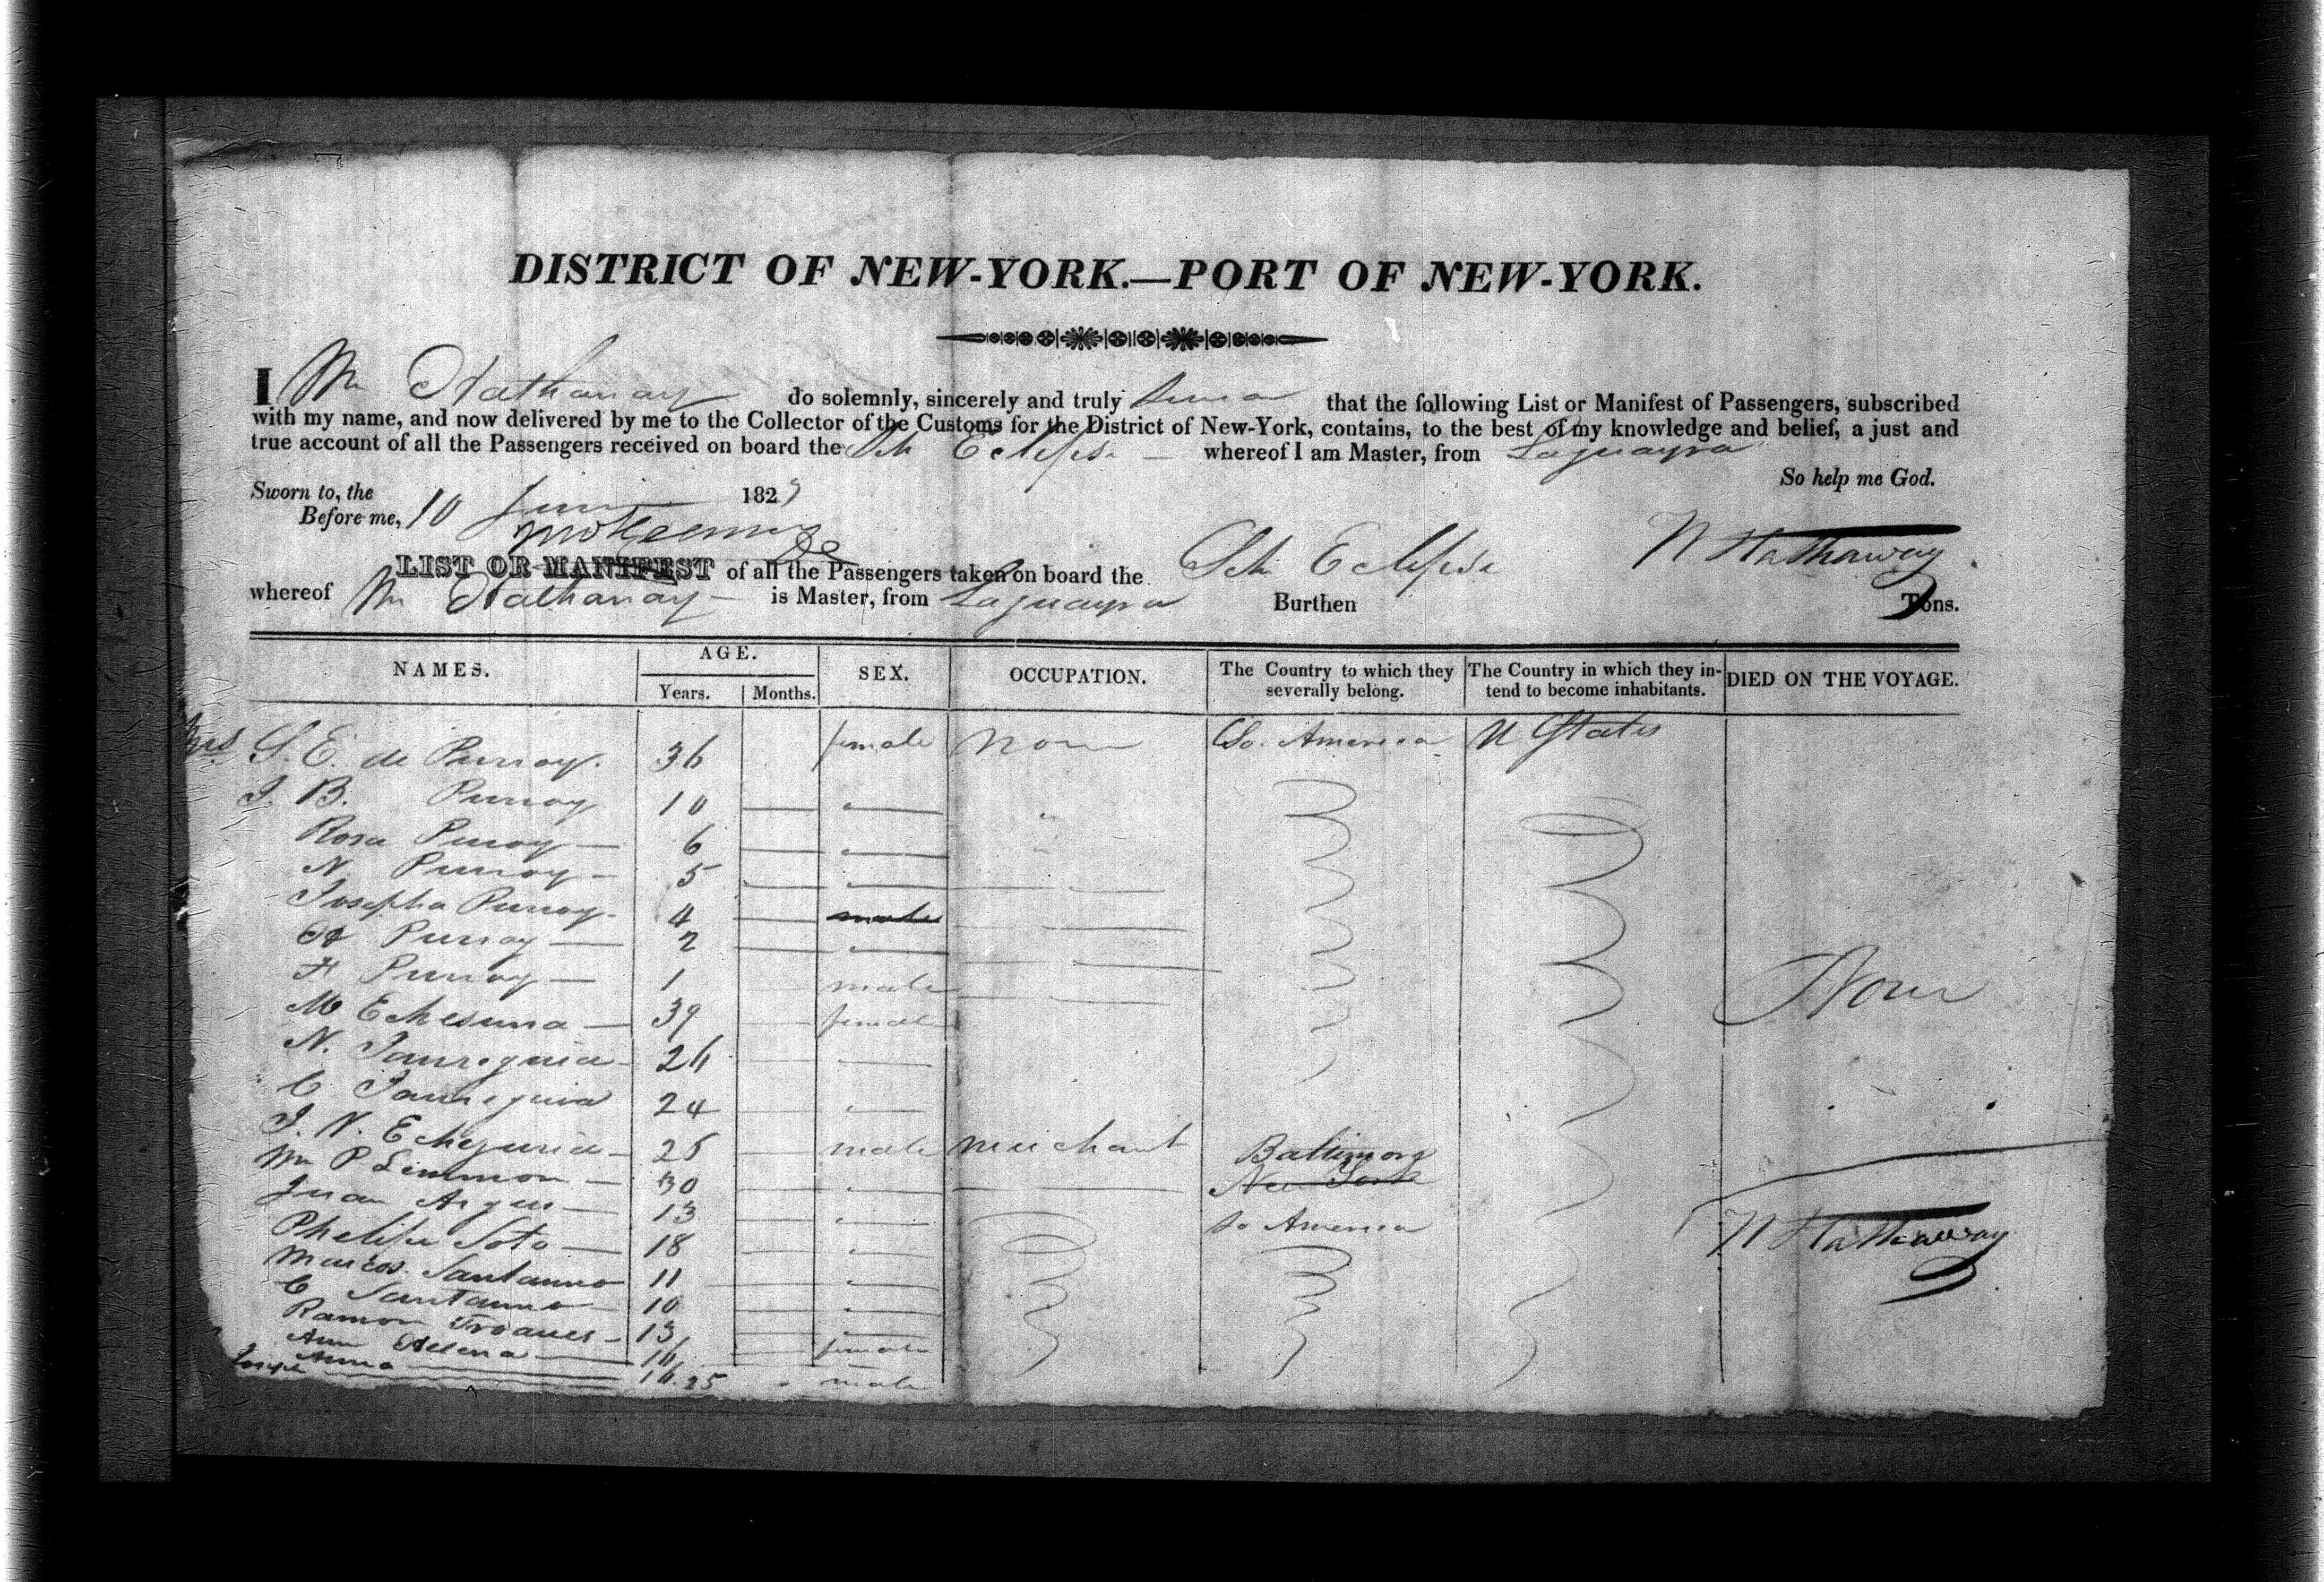 DISTRICT OF NEW-YORK.—PORT OF NEW-YORK.
I Wm Hathaway do solemnly, sincerely and truly swear that the following List or Manifest of Passengers, subscribed
with my name, and now delivered by me to the Collector of the Customs for the District of New-York, contains, to the best of my knowledge and belief, a just and
true account of all the Passengers received on board the Sch Eclipse — whereof I am Master, from Laguayra
So help me God.
Sworn to, the 10 June 1829
Before me,
W Hathaway
LIST OR MANIFEST of all the Passengers taken on board the Sch Eclipse
whereof Wm Hathaway — is Master, from Laguayra Burthen Tons.
NAMES. AGE. Years. Months. SEX. OCCUPATION. The Country to which they severally belong. The Country in which they intend to become inhabitants. DIED ON THE VOYAGE.
Mrs S. E. de Purroy. 36 female None So. America U States
J. B. Purroy 10
Rosa Purroy — 6
N. Purroy — 5
Josepha Purroy 4 male
A Purroy — 2
F Purroy — 1 male None
M Echesuria — 39 female
N. Jaureguia 26
C. Jaureguia 24
J. N. Echezuria — 25 male merchant Baltimore
Wm P Lemmon — 30 New York
Juan Argus — 13 So America
W Hathaway
Phelipe Soto — 18
Marcos Santanna 11
C Santanna 10
Ramon 13
Ann Ellena — 16 female
Anna 16
Joseph 25 male